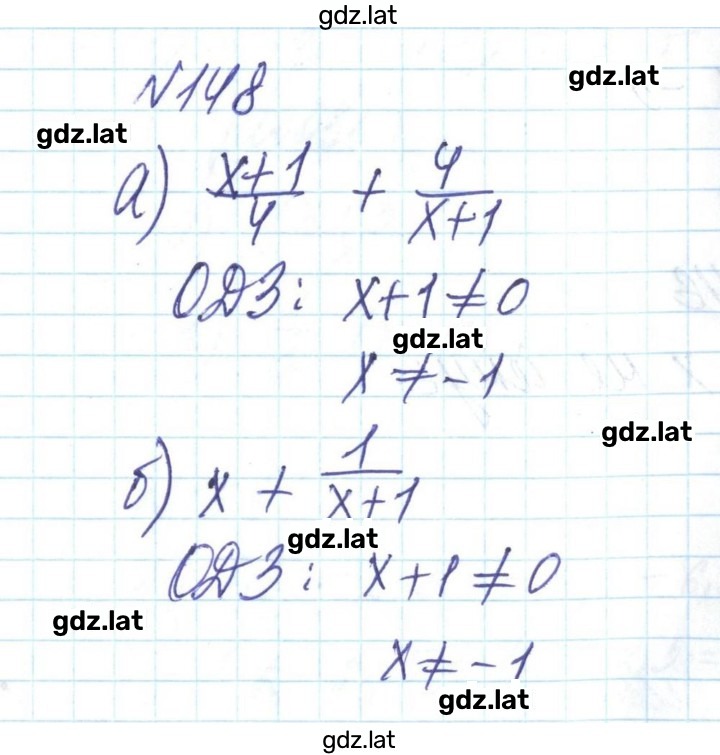 gdz.lat
gdz.lat
№148
gdz.lat
а) (x+1)/4 + 4/(x+1)
ОДЗ: x+1≠0
gdz.lat
x≠-1
gdz.lat
б) x + 1/(x+1)
gdz.lat
ОДЗ: x+1≠0
gdz.lat
x≠-1
gdz.lat
gdz.lat